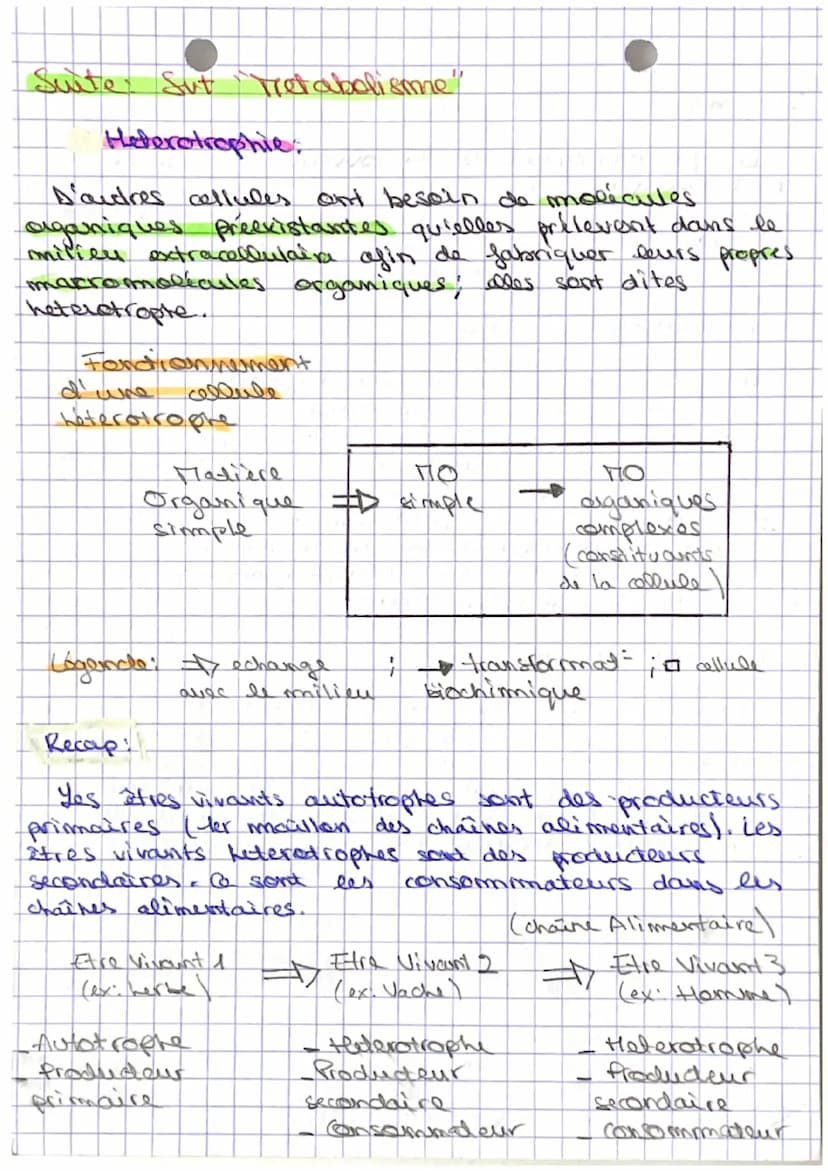 Suite: Svt "Metabolisme"
Heterotrophie:
D'autres cellules ont besoin de molécules
organiques préexistantes qu'elles prélèvent dans le
milieu extracellulaire afin de fabriquer leurs propres
macromolécules organiques; elles sont dites
heterotrophe.
Fonctionnement
d'une cellule
héterotrophe
Matière Organique simple ⇒ MO simple → MO organiques complexes (constituants de la cellule)
Légende: ⇒ echange avec le milieu ; → transformat° biochimique ; □ cellule
Recap:
Les êtres vivants autotrophes sont des producteurs
primaires (1er maillon des chaînes alimentaires). Les
êtres vivants heterotrophes sont des producteurs
secondaires. Ce sont les consommateurs dans les
chaînes alimentaires.
(chaîne Alimentaire)
Etre Vivant 1 ⇒ Etre Vivant 2 ⇒ Etre Vivant 3
(ex: herbe) (ex: Vache) (ex: Homme)
- Autotrophe - Heterotrophe - Heterotrophe
- Producteur - Producteur - Producteur
primaire secondaire secondaire
- Consommateur - Consommateur